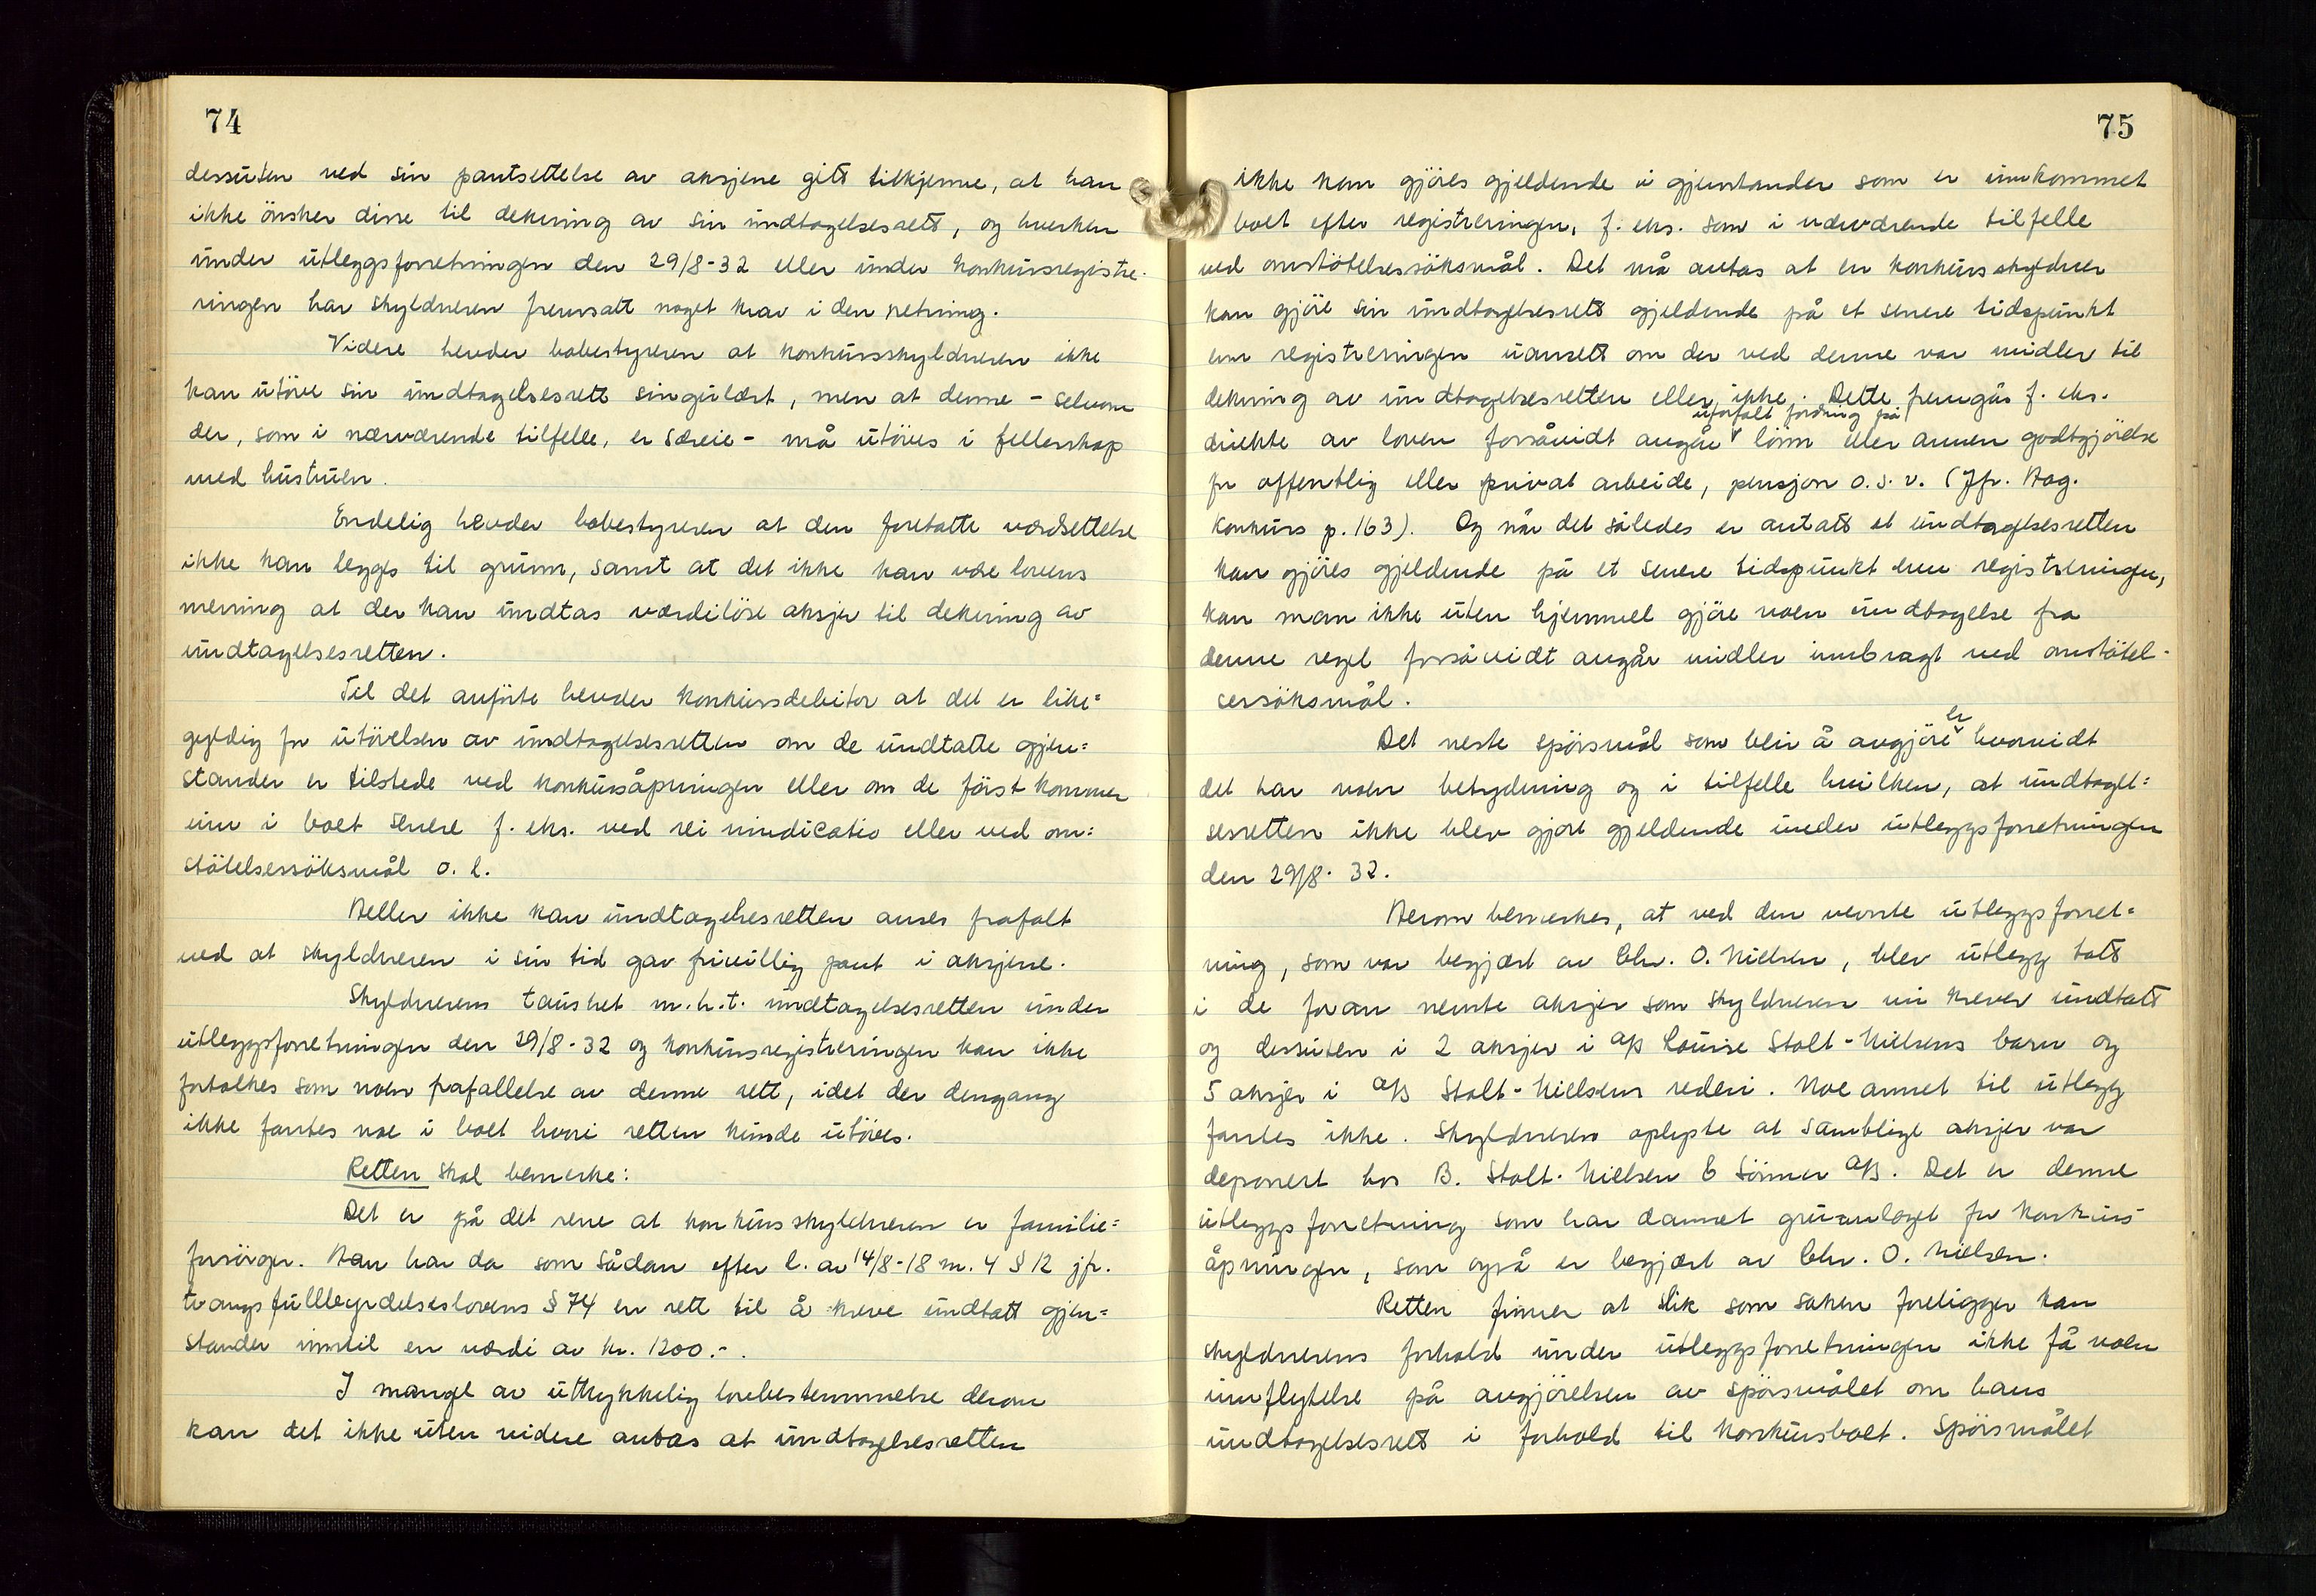 74
dessuten ved sin pantsettelse av aksjene gitt tilkjenne, at han
ikke önsker disse til dekning av sin undtagelsesrett, og hverken
under utleggsforretningen den 29/8-32 eller under konkursregistre-
ringen har skyldneren fremsatt noget krav i den retning.
Videre hevder bobestyreren at konkursskyldneren ikke
kan utöve sin undtagelsesrett singulært, men at denne - selvom
der, som i nærværende tilfelle, er særeie - må utöves i fellesskap
med hustruen.
Endelig hevder bobestyreren at den foretatte værdsettelse
ikke kan legges til grunn, samt at det ikke kan være lovens
mening at der kan undtas værdilöse aksjer til dekning av
undtagelsesretten.
Til det anförte hevder konkursdebitor at det er like=
gyldig for utövelsen av undtagelsesretten om de undtatte gjen=
stander er tilstede ved konkursåpningen eller om de först kommer
inn i boet senere f. eks. ved rei vindicatio eller ved om=
stötelsessöksmål o. l.
Heller ikke kan undtagelsesretten anses frafalt
ved at skyldneren i sin tid gav frivillig pant i aksjene.
Skyldnerens taushet m.h.t. undtagelsesretten under
utleggsforretningen den 29/8-32 og konkursregistreringen kan ikke
fortolkes som noen frafallelse av denne rett, idet der dengang
ikke fantes noe i boet hvori retten kunde utöves.
Retten skal bemerke:
Det er på det rene at konkursskyldneren er familie=
forsörger. Han har da som sådan efter l. av 14/8-18 nr. 4 § 12 jfr.
tvangsfullbyrdelseslovens § 74 en rett til å kreve undtatt gjen=
stander inntil en værdi av kr. 1200.-.
I mangel av uttrykkelig lovbestemmelse derom
kan det ikke uten videre antas at undtagelsesretten
75
ikke kan gjöres gjeldende i gjenstander som er innkommet
boet efter registreringen, f. eks. som i nærværende tilfelle
ved omstötelsessöksmål. Det må antas at en konkursskyldner
kan gjöre sin undtagelsesrett gjeldende på et senere tidspunkt
enn registreringen uansett om der ved denne var midler til
dekning av undtagelsesretten eller ikke. Dette fremgår f. eks.
uforfalt fordring på
direkte av loven forsåvidt angår lönn eller annen godtgjörelse
for offentlig eller privat arbeide, pensjon o.s.v. (Jfr. Hag.
Konkurs p. 163). Og når det således er antatt at undtagelsesretten
kan gjöres gjeldende på et senere tidspunkt enn registreringen,
kan man ikke uten hjemmel gjöre noen undtagelse fra
denne regel forsåvidt angår midler innbragt ved omstötel-
sessöksmål.
er
Det neste spörsmål som blir å avgjöre hvorvidt
det har noen betydning og i tilfelle hvilken, at undtagel=
sesretten ikke blev gjort gjeldende under utleggsforretningen
den 29/8-32.
Herom bemerkes, at ved den nevnte utleggsforret=
ning, som var begjært av Chr. O. Nielsen, blev utlegg tatt
i de foran nevnte aksjer som skyldneren nu krever undtatt
og dessuten i 2 aksjer i A/S Louise Stolt-Nielsens barn og
5 aksjer i A/S Stolt-Nielsens rederi. Noe annet til utlegg
fantes ikke. Skyldneren oplyste at samtlige aksjer var
deponert hos B. Stolt-Nielsen & Sönner A/S. Det er denne
utleggsforretning som har dannet grunnlaget for konkurs-
åpningen, som også er begjært av Chr. O. Nielsen.
Retten finner at slik som saken foreligger kan
skyldnerens forhold under utleggsforretningen ikke få noen
innflytelse på avgjörelsen av spörsmålet om hans
undtagelsesrett i forhold til konkursboet. Spörsmålet